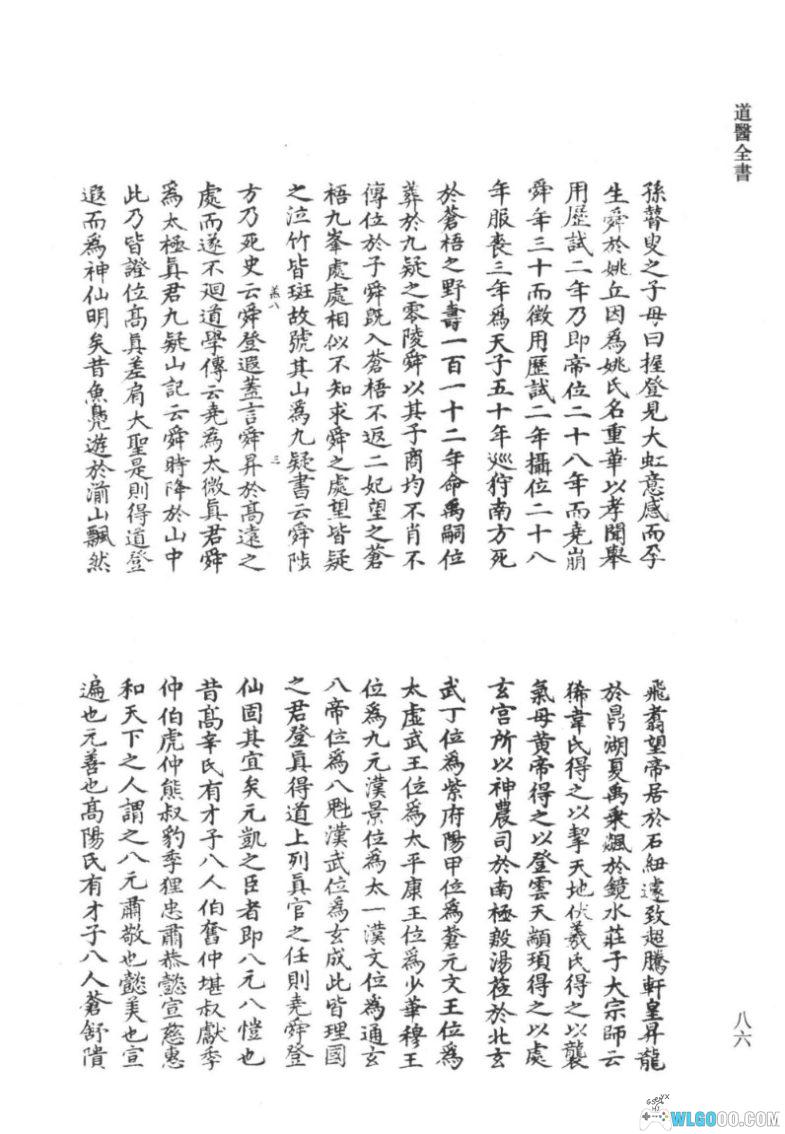 道醫全書
孫瞽叟之子母曰握登見大虹意感而孕
生舜於姚丘因為姚氏名重華以孝聞舉
用歷試二年乃即帝位二十八年而堯崩
舜年三十而徵用歷試二年攝位二十八
年服喪三年為天子五十年巡狩南方死
於蒼梧之野壽一百一十二年命禹嗣位
葬於九疑之零陵舜以其子商均不肖不
傳位於子舜既入蒼梧不返二妃望之蒼
梧九峯處處相似不知求舜之處望皆疑
之泣竹皆斑故號其山為九疑書云舜陟
蓋八
三
方乃死史云舜登遐蓋言舜昇於高遠之
處而遂不迴道學傳云堯為太微真君舜
為太極真君九疑山記云舜時降於山中
此乃皆證位高真差肩大聖是則得道登
遐而為神仙明矣昔魚鳧遊於湔山飄然
飛翥望帝居於石紐遠致超騰軒皇昇龍
於鼎湖夏禹乘飆於鏡水莊子大宗師云
狶韋氏得之以挈天地伏羲氏得之以襲
氣母黃帝得之以登雲天顓頊得之以處
玄宮所以神農司於南極殷湯蒞於北玄
武丁位為紫府陽甲位為蒼元文王位為
太虛武王位為太平康王位為少華穆王
位為九元漢景位為太一漢文位為通玄
八帝位為八魁漢武位為玄成此皆理國
之君登真得道上列真官之任則堯舜登
仙固其宜矣元凱之臣者即八元八愷也
昔高辛氏有才子八人伯奮仲堪叔獻季
仲伯虎仲熊叔豹季狸忠肅恭懿宣慈惠
和天下之人謂之八元肅敬也懿美也宣
遍也元善也高陽氏有才子八人蒼舒隤
八六
WLGOOO.COM